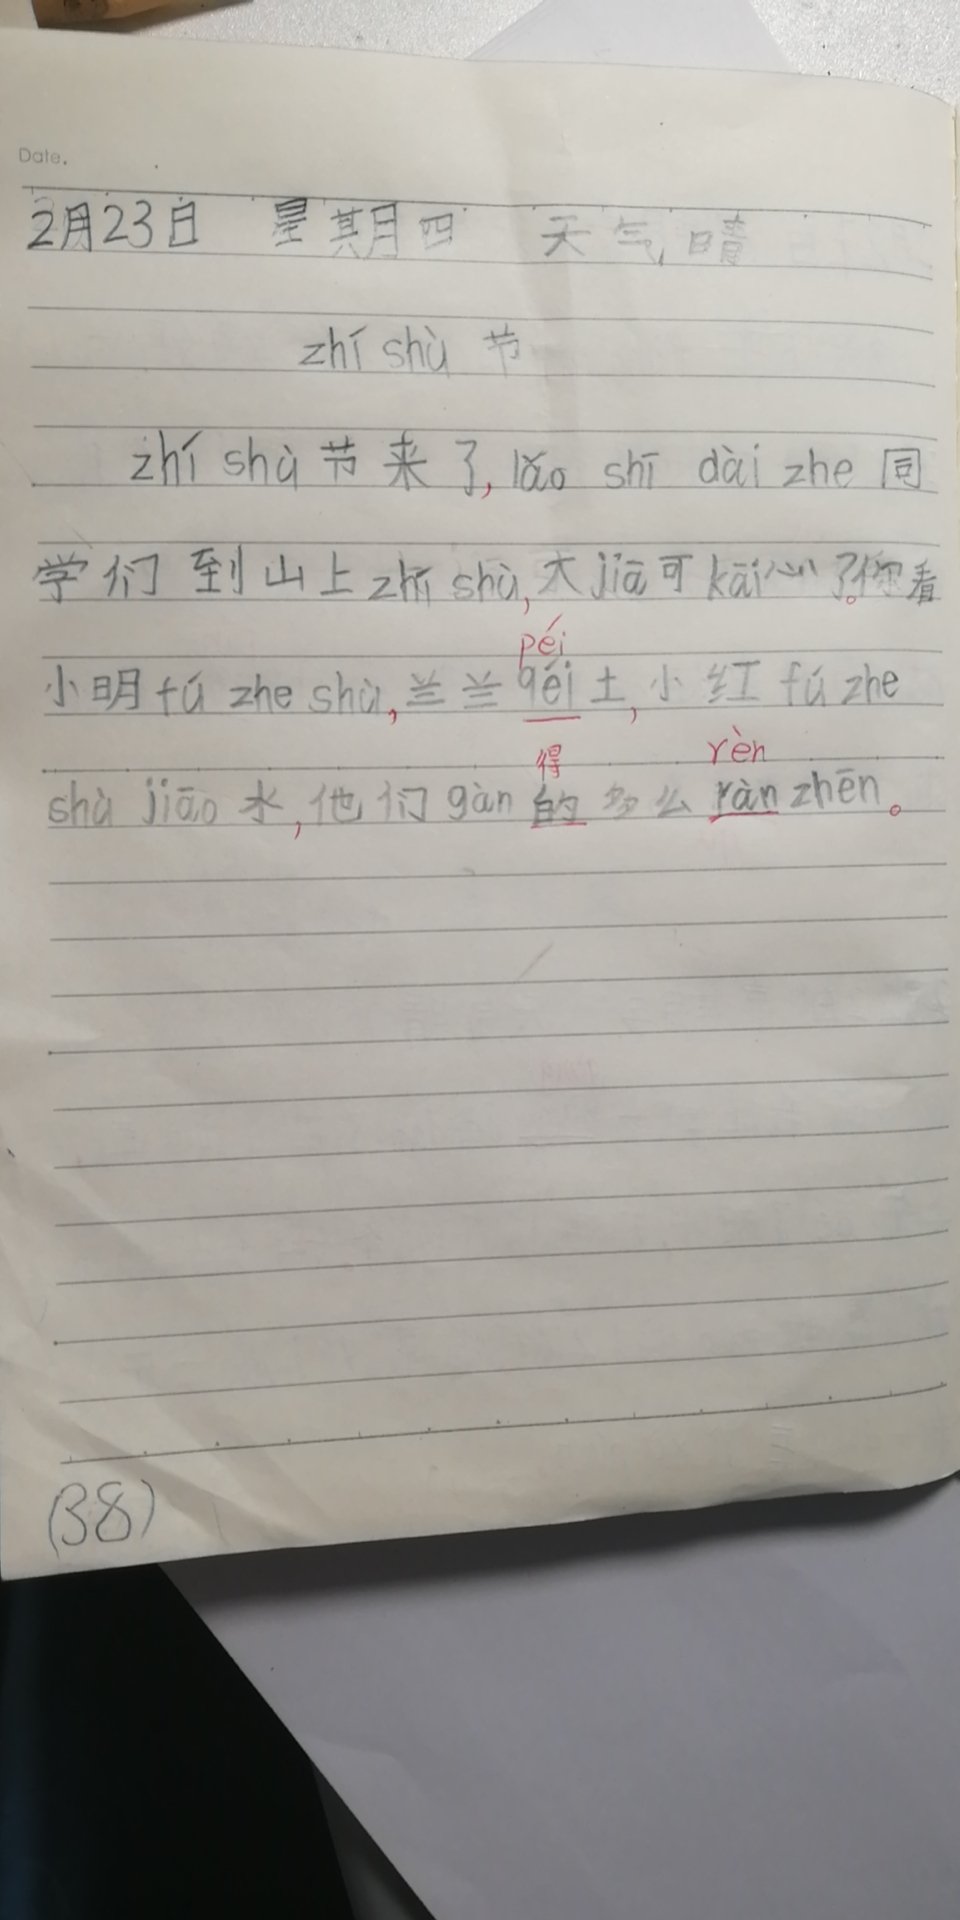 Date.
2月23日 星期四 天气晴
zhí shù 节
zhí shù 节来了,lǎo shī dài zhe 同
学们到山上 zhí shù,大 jiā 可 kāi 心了。你看
péi
小明 fú zhe shù,兰兰 qéi 土,小红 fú zhe
得 rèn
shù jiāo 水,他们 gàn 的多么 ràn zhēn。
(38)